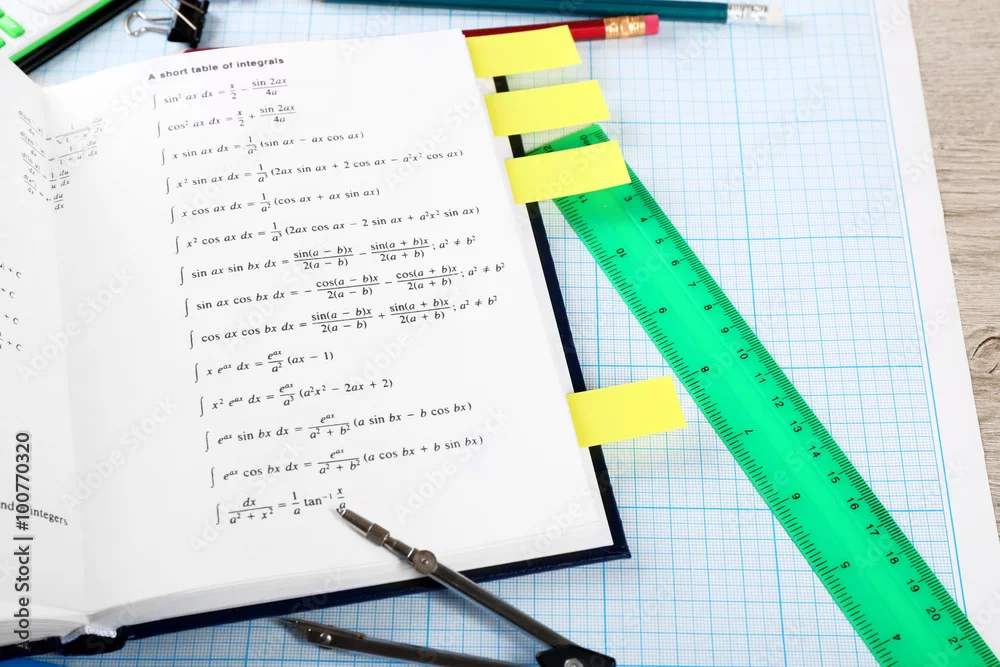 A short table of integrals
∫ sin² ax dx = x/2 − sin 2ax/4a
∫ cos² ax dx = x/2 + sin 2ax/4a
∫ x sin ax dx = 1/a² (sin ax − ax cos ax)
∫ x² sin ax dx = 1/a³ (2ax sin ax + 2 cos ax − a²x² cos ax)
∫ x cos ax dx = 1/a² (cos ax + ax sin ax)
∫ x² cos ax dx = 1/a³ (2ax cos ax − 2 sin ax + a²x² sin ax)
∫ sin ax sin bx dx = sin(a − b)x/2(a − b) − sin(a + b)x/2(a + b); a² ≠ b²
∫ sin ax cos bx dx = − cos(a − b)x/2(a − b) − cos(a + b)x/2(a + b); a² ≠ b²
∫ cos ax cos bx dx = sin(a − b)x/2(a − b) + sin(a + b)x/2(a + b); a² ≠ b²
∫ x eᵃˣ dx = eᵃˣ/a² (ax − 1)
∫ x² eᵃˣ dx = eᵃˣ/a³ (a²x² − 2ax + 2)
∫ eᵃˣ sin bx dx = eᵃˣ/a² + b² (a sin bx − b cos bx)
∫ eᵃˣ cos bx dx = eᵃˣ/a² + b² (a cos bx + b sin bx)
∫ dx/a² + x² = 1/a tan⁻¹ x/a
+ C
+ C
+ C
+ C
integers
3 4 5 6 7 8 9 10 11 12 13 14 15 16 17 18 19 20 21
11 10 9 8 7 6 5 4
Adobe Stock | #100770320
Adobe Stock